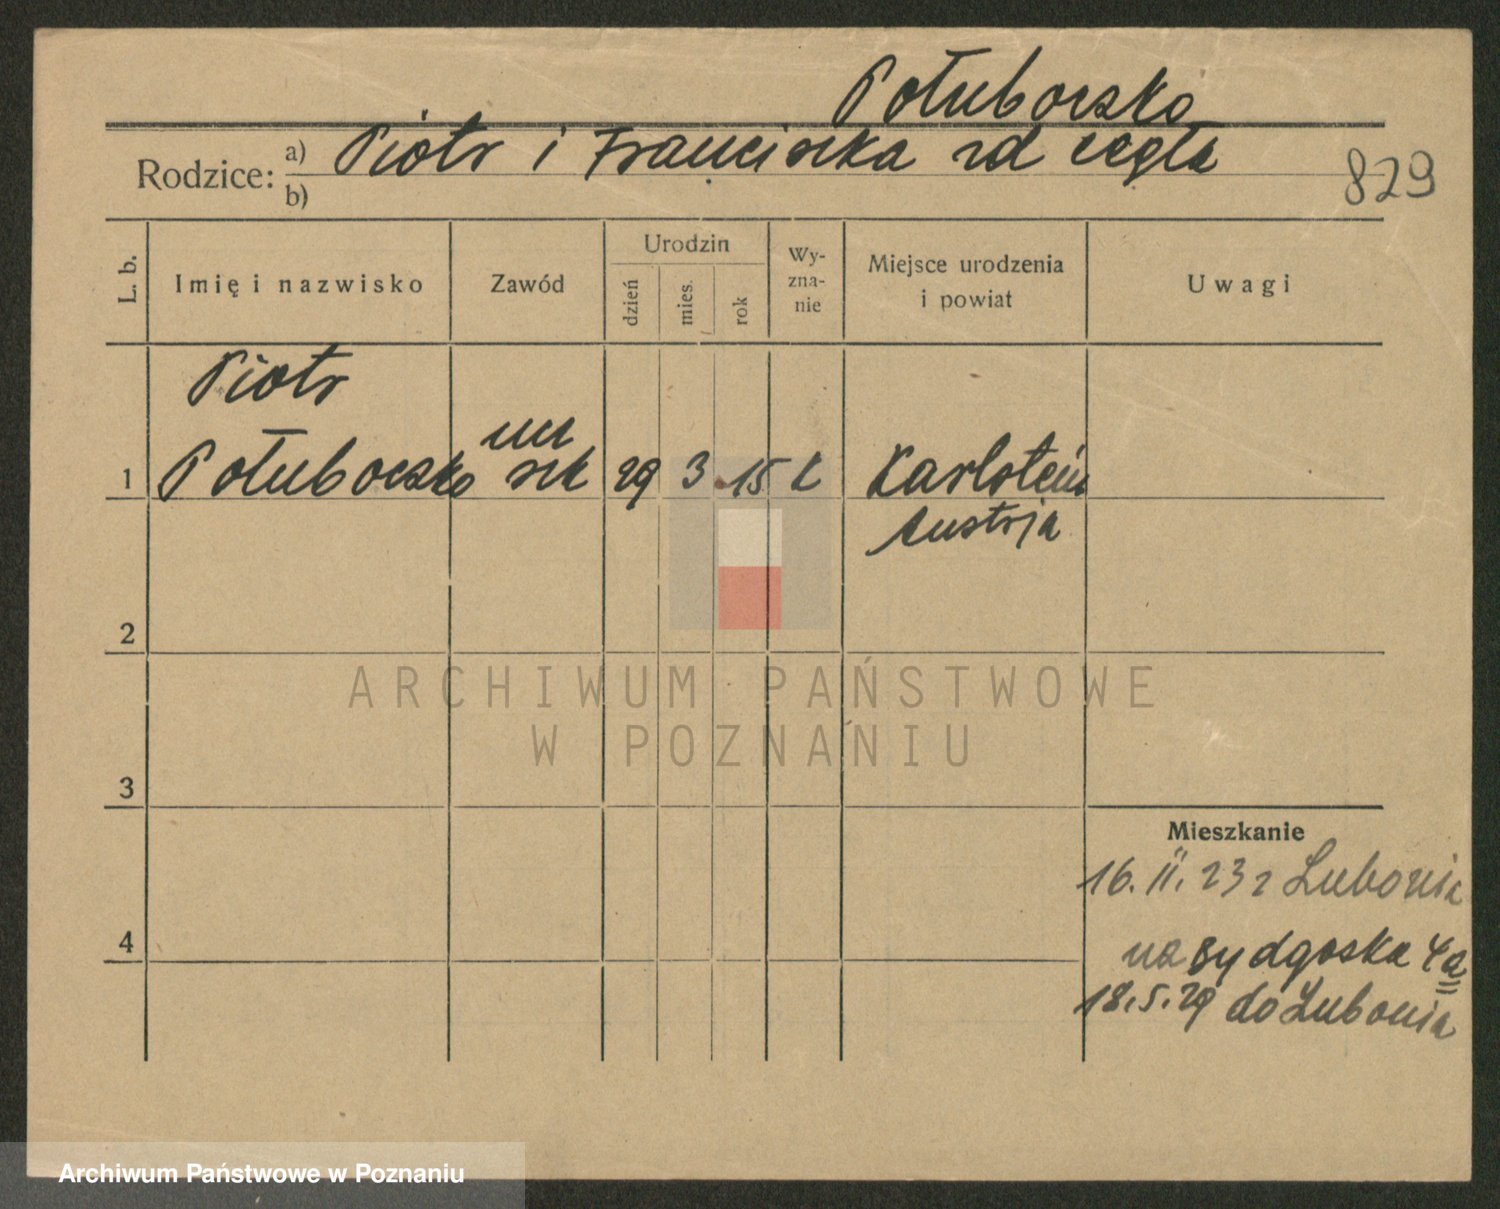 Połuboczko
Rodzice: a) Piotr i Franciszka zd Cegła
b)
829
L. b.
Imię i nazwisko
Zawód
Urodzin
dzień
mies.
rok
Wy-
zna-
nie
Miejsce urodzenia
i powiat
Uwagi
Piotr
1 Połuboczko
29 3. 15 k Karlstein
Austrja
2
ARCHIWUM PAŃSTWOWE
W POZNANIU
3
Mieszkanie
16. II. 23 z Lubonia
4
na Bydgoska 4a
18.5.29 do Lubonia
Archiwum Państwowe w Poznaniu